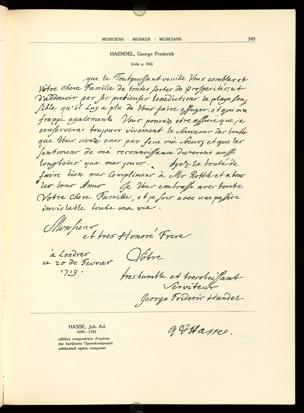 MUSICIENS - MUSIKER - MUSICIANS
HAENDEL, George Frederick
que le Toutpuissant veuille Vous combler et
Votre chere Famille de toutes sortes de Prosperités, et
d'adoucir par ses pretieuses benedictions la playe sen,
sible qu'il Lui a plû de Vous faire essuyer, et qui m'a
frappé egalement. Vous pouvez etre assuré, que je
conserverai toujours vivement le Souvenir des bontés
que Vous avez eues par feue ma Soeur, et que les
sentimens de ma reconnoissance dureront aussi
longtems que mes jours. Ayez la bonté de
faire bien mes Compliments à Mr
et à tous
les bons Amis. Je Vous embrasse avec toute
Votre chere Famille, et je suis avec une passion
inviolable toute ma vie.
Monsieur
et tres Honoré Frere
à Londres
Vôtre
ce 20 de Fevrier
1719.
tres humble et tres obeissant
Serviteur
George Frideric Handel
HASSE, Joh. Ad.
1699-1783
célèbre compositeur d'opéras
der berühmte Opernkomponist
celebrated opera composer
Hasse.